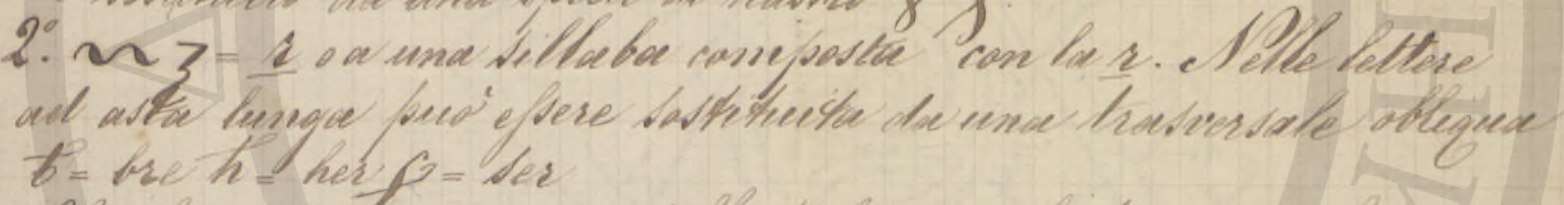 da una
2.° ~ ʒ = r o a una sillaba composta con la r. Nelle lettere
ad asta lunga può eſsere sostituita da una trasversale obliqua
ƀ = bre ħ = her ꝭ = ser